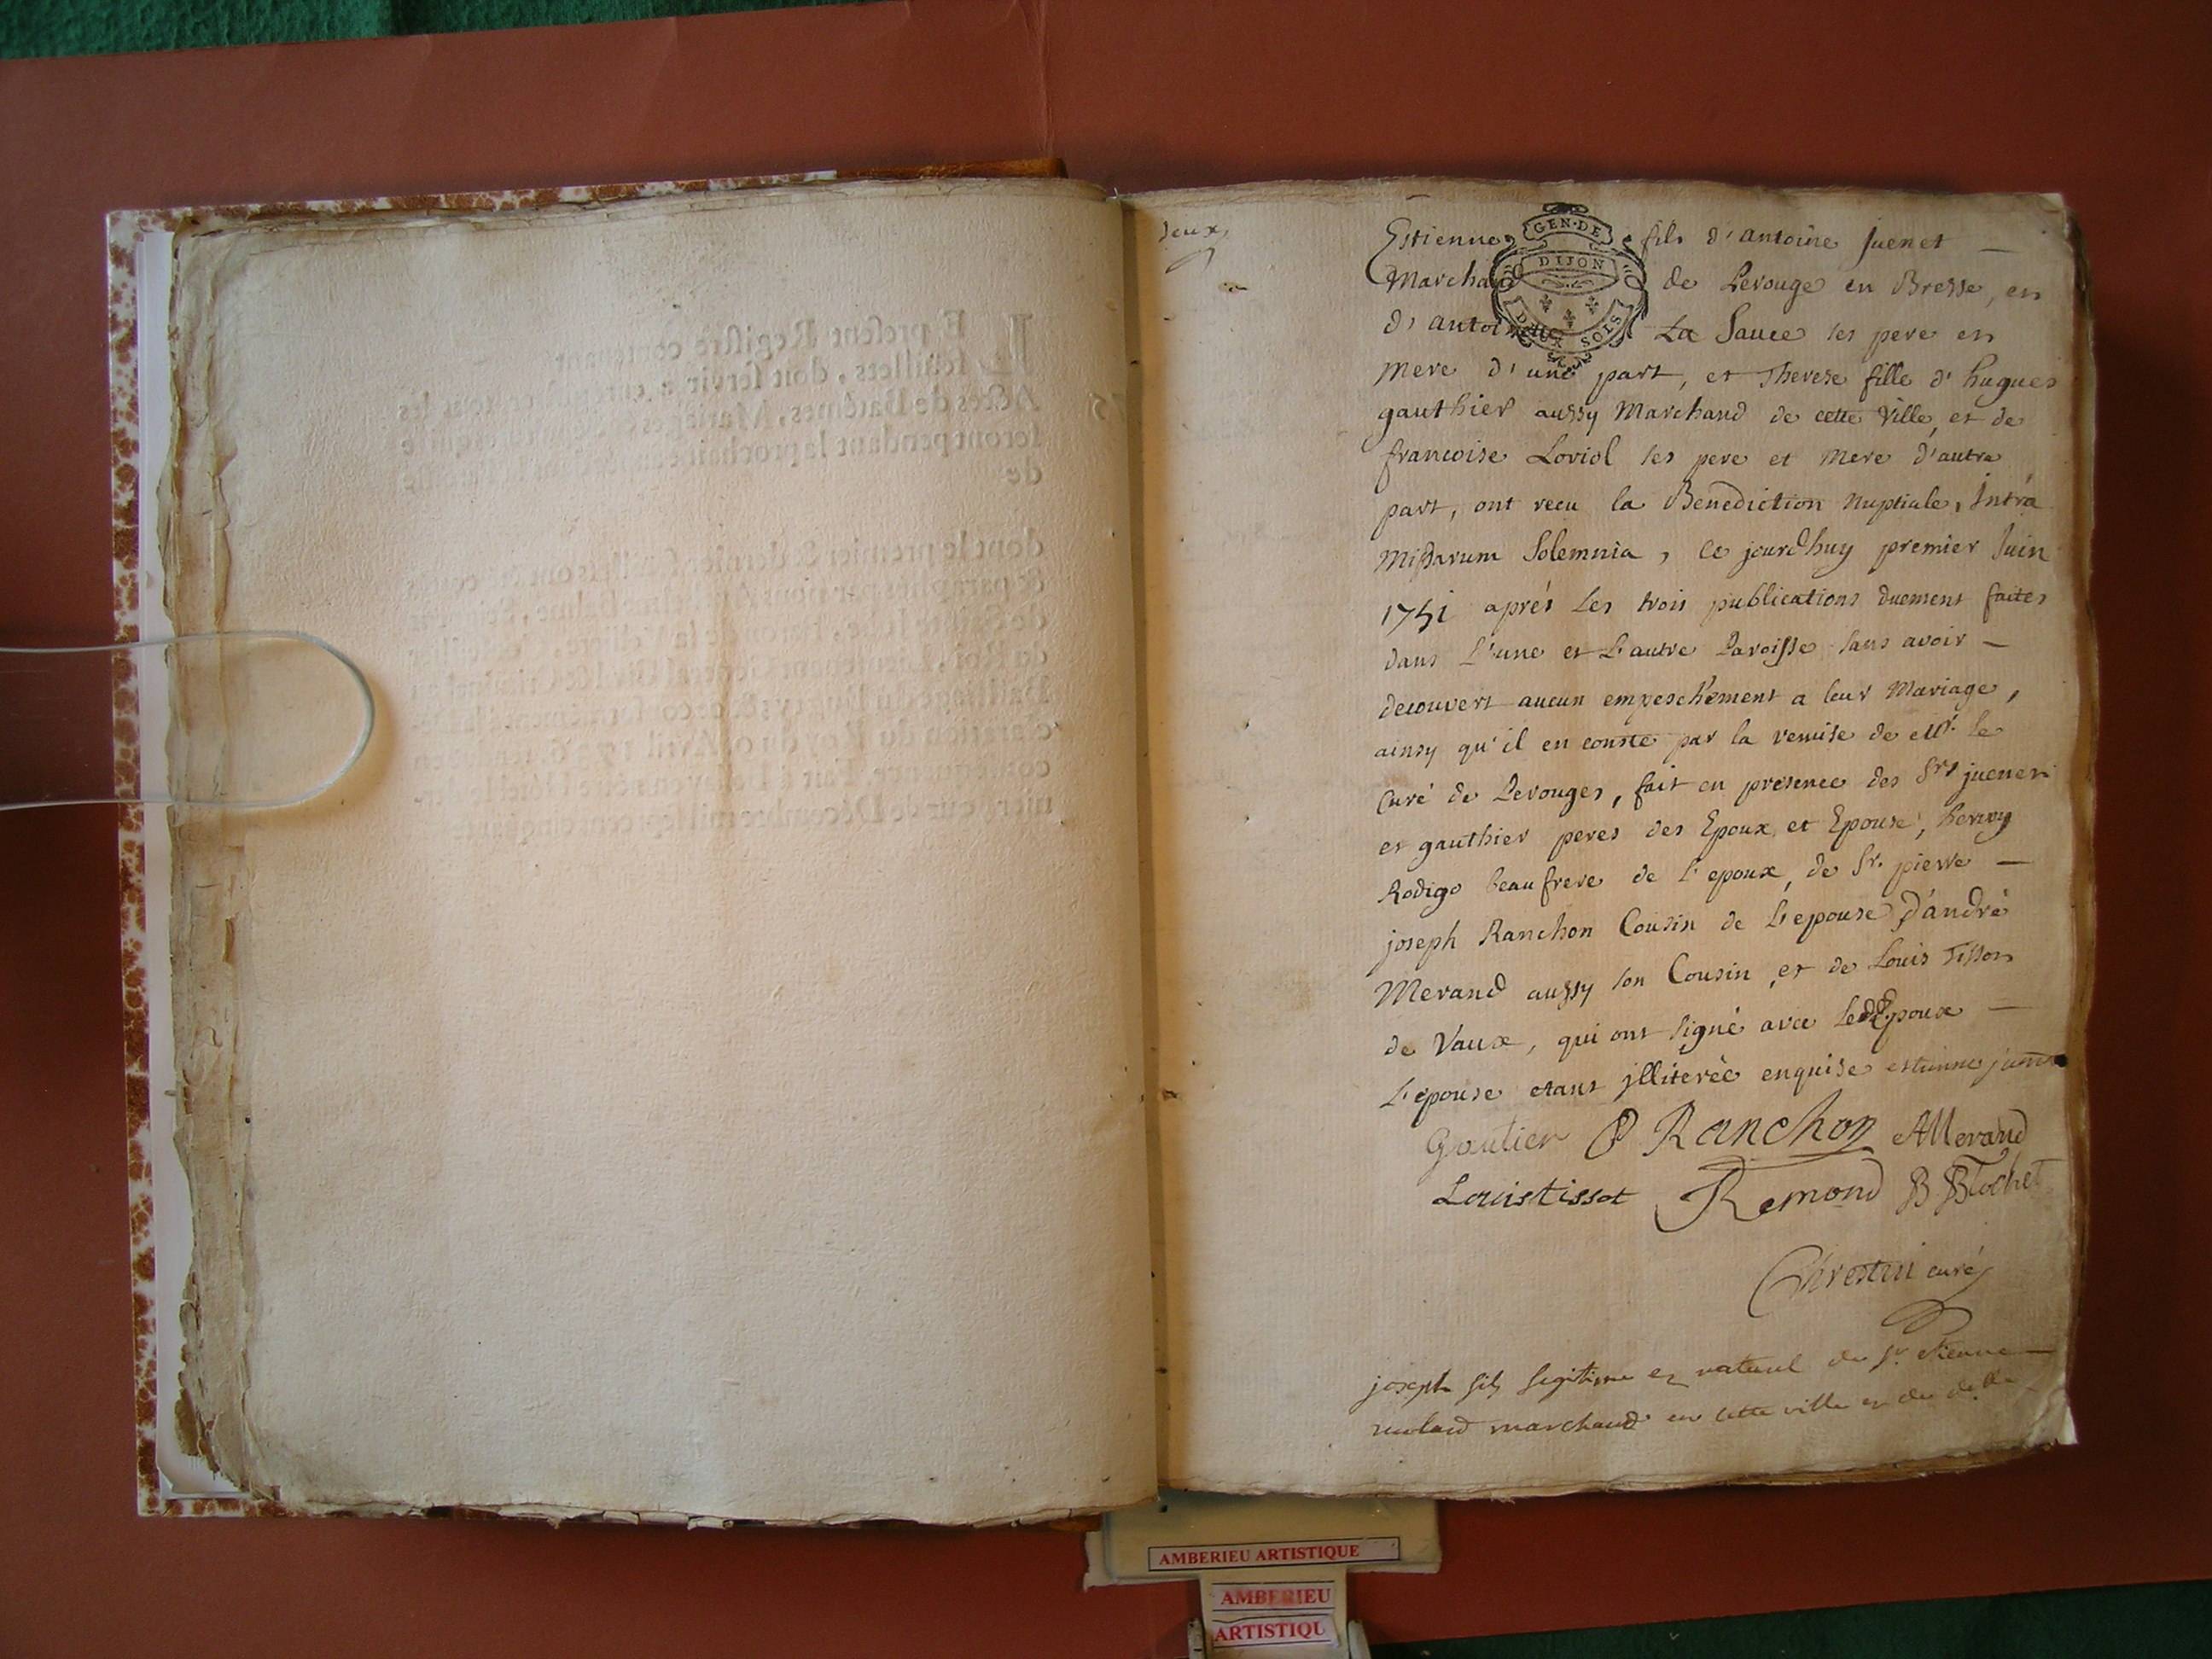 deux
GEN·DE
DIJON
DEUX SOLS
Estienne fils d'antoine Juenet —
Marchand de Perouge en Bresse, et
d'antoinette La Sauce ses pere et
mere d'une part, et Therese fille d'hugues
gauthier aussy Marchand de cette Ville, et de
francoise Loriol ses pere et mere d'autre
part, ont recu la Benediction nuptiale, Intra
Missarum Solemnia, ce jourdhuy premier Juin
1751 aprés Les trois publications duement faites
dans L'une et L'autre Paroisse sans avoir —
decouvert aucun empeschement a leur Mariage,
ainsy qu'il en conste par la remise de Mr. le
Curé de Perouges, fait en presence des Srs juenet
et gauthier peres des Epoux et Epouse,
Rodigo beaufrere de L'epoux, de Sr. pierre —
joseph Ranchon Cousin de L'epouse, d'andré
Merand aussy son Cousin, et de Louis Tissot
de Vaux, qui ont signé avec Epoux —
L'epouse etant jlliterée enquise estienne juenet
Gautier P Ranchon AMerand
Louis tissot Remond B Blochet
Chrestin curé
joseph fils legitime et naturel de Sr. etienne —
marchand en cette ville et de delle
L E present Registre contenant
feüillets, doit servir a
Actes de Batêmes, Mariages
seront pendant la prochaine
de
dont le premier & dernier feüillets ont été cottés
& paraphés par nous Balme,
du Roi, Lieutenant General Civil & Criminel au
Bailliage du Bugey,
claration du Roi du 9. Avril 1736.
consequence. Fait à Belley en nôtre Hôtel le
mier jour de Décembre mil sept cent cinquante
AMBERIEU ARTISTIQUE
AMBERIEU
ARTISTIQU